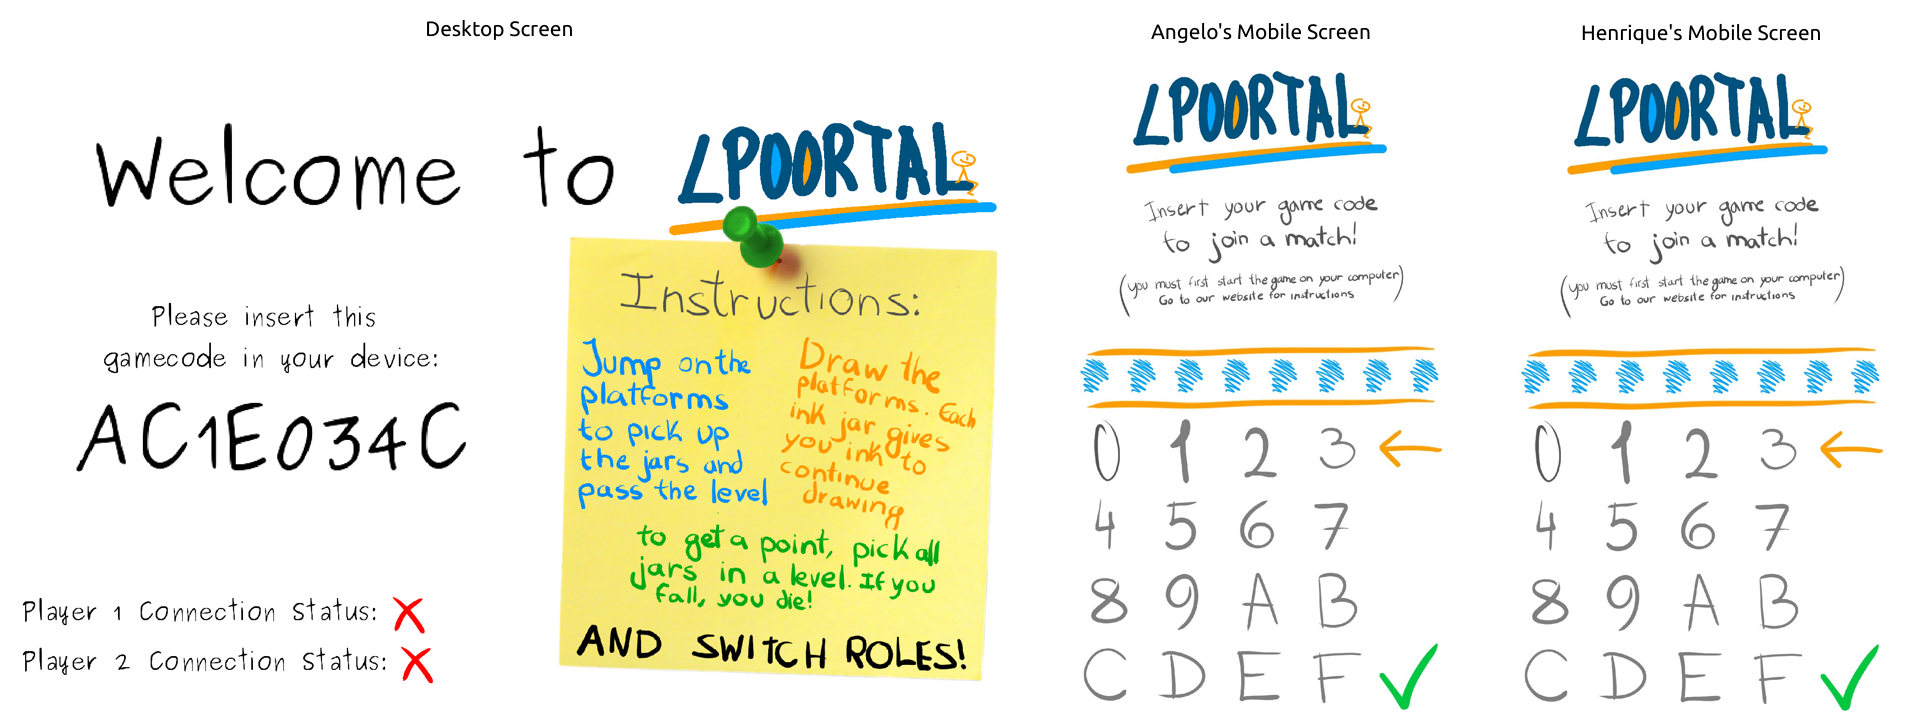 Desktop Screen
Welcome to LPOORTAL
Please insert this
gamecode in your device:
AC1E034C
Player 1 Connection Status:
Player 2 Connection Status:
Instructions:
Jump on the
platforms
to pick up
the jars and
pass the level
Draw the
platforms. Each
ink jar gives
you ink to
continue
drawing
to get a point, pick all
jars in a level. If you
fall, you die!
AND SWITCH ROLES!
Angelo's Mobile Screen
LPOORTAL
Insert your game code
to join a match!
(you must first start the game on your computer
Go to our website for instructions)
0 1 2 3
4 5 6 7
8 9 A B
C D E F
Henrique's Mobile Screen
LPOORTAL
Insert your game code
to join a match!
(you must first start the game on your computer
Go to our website for instructions)
0 1 2 3
4 5 6 7
8 9 A B
C D E F